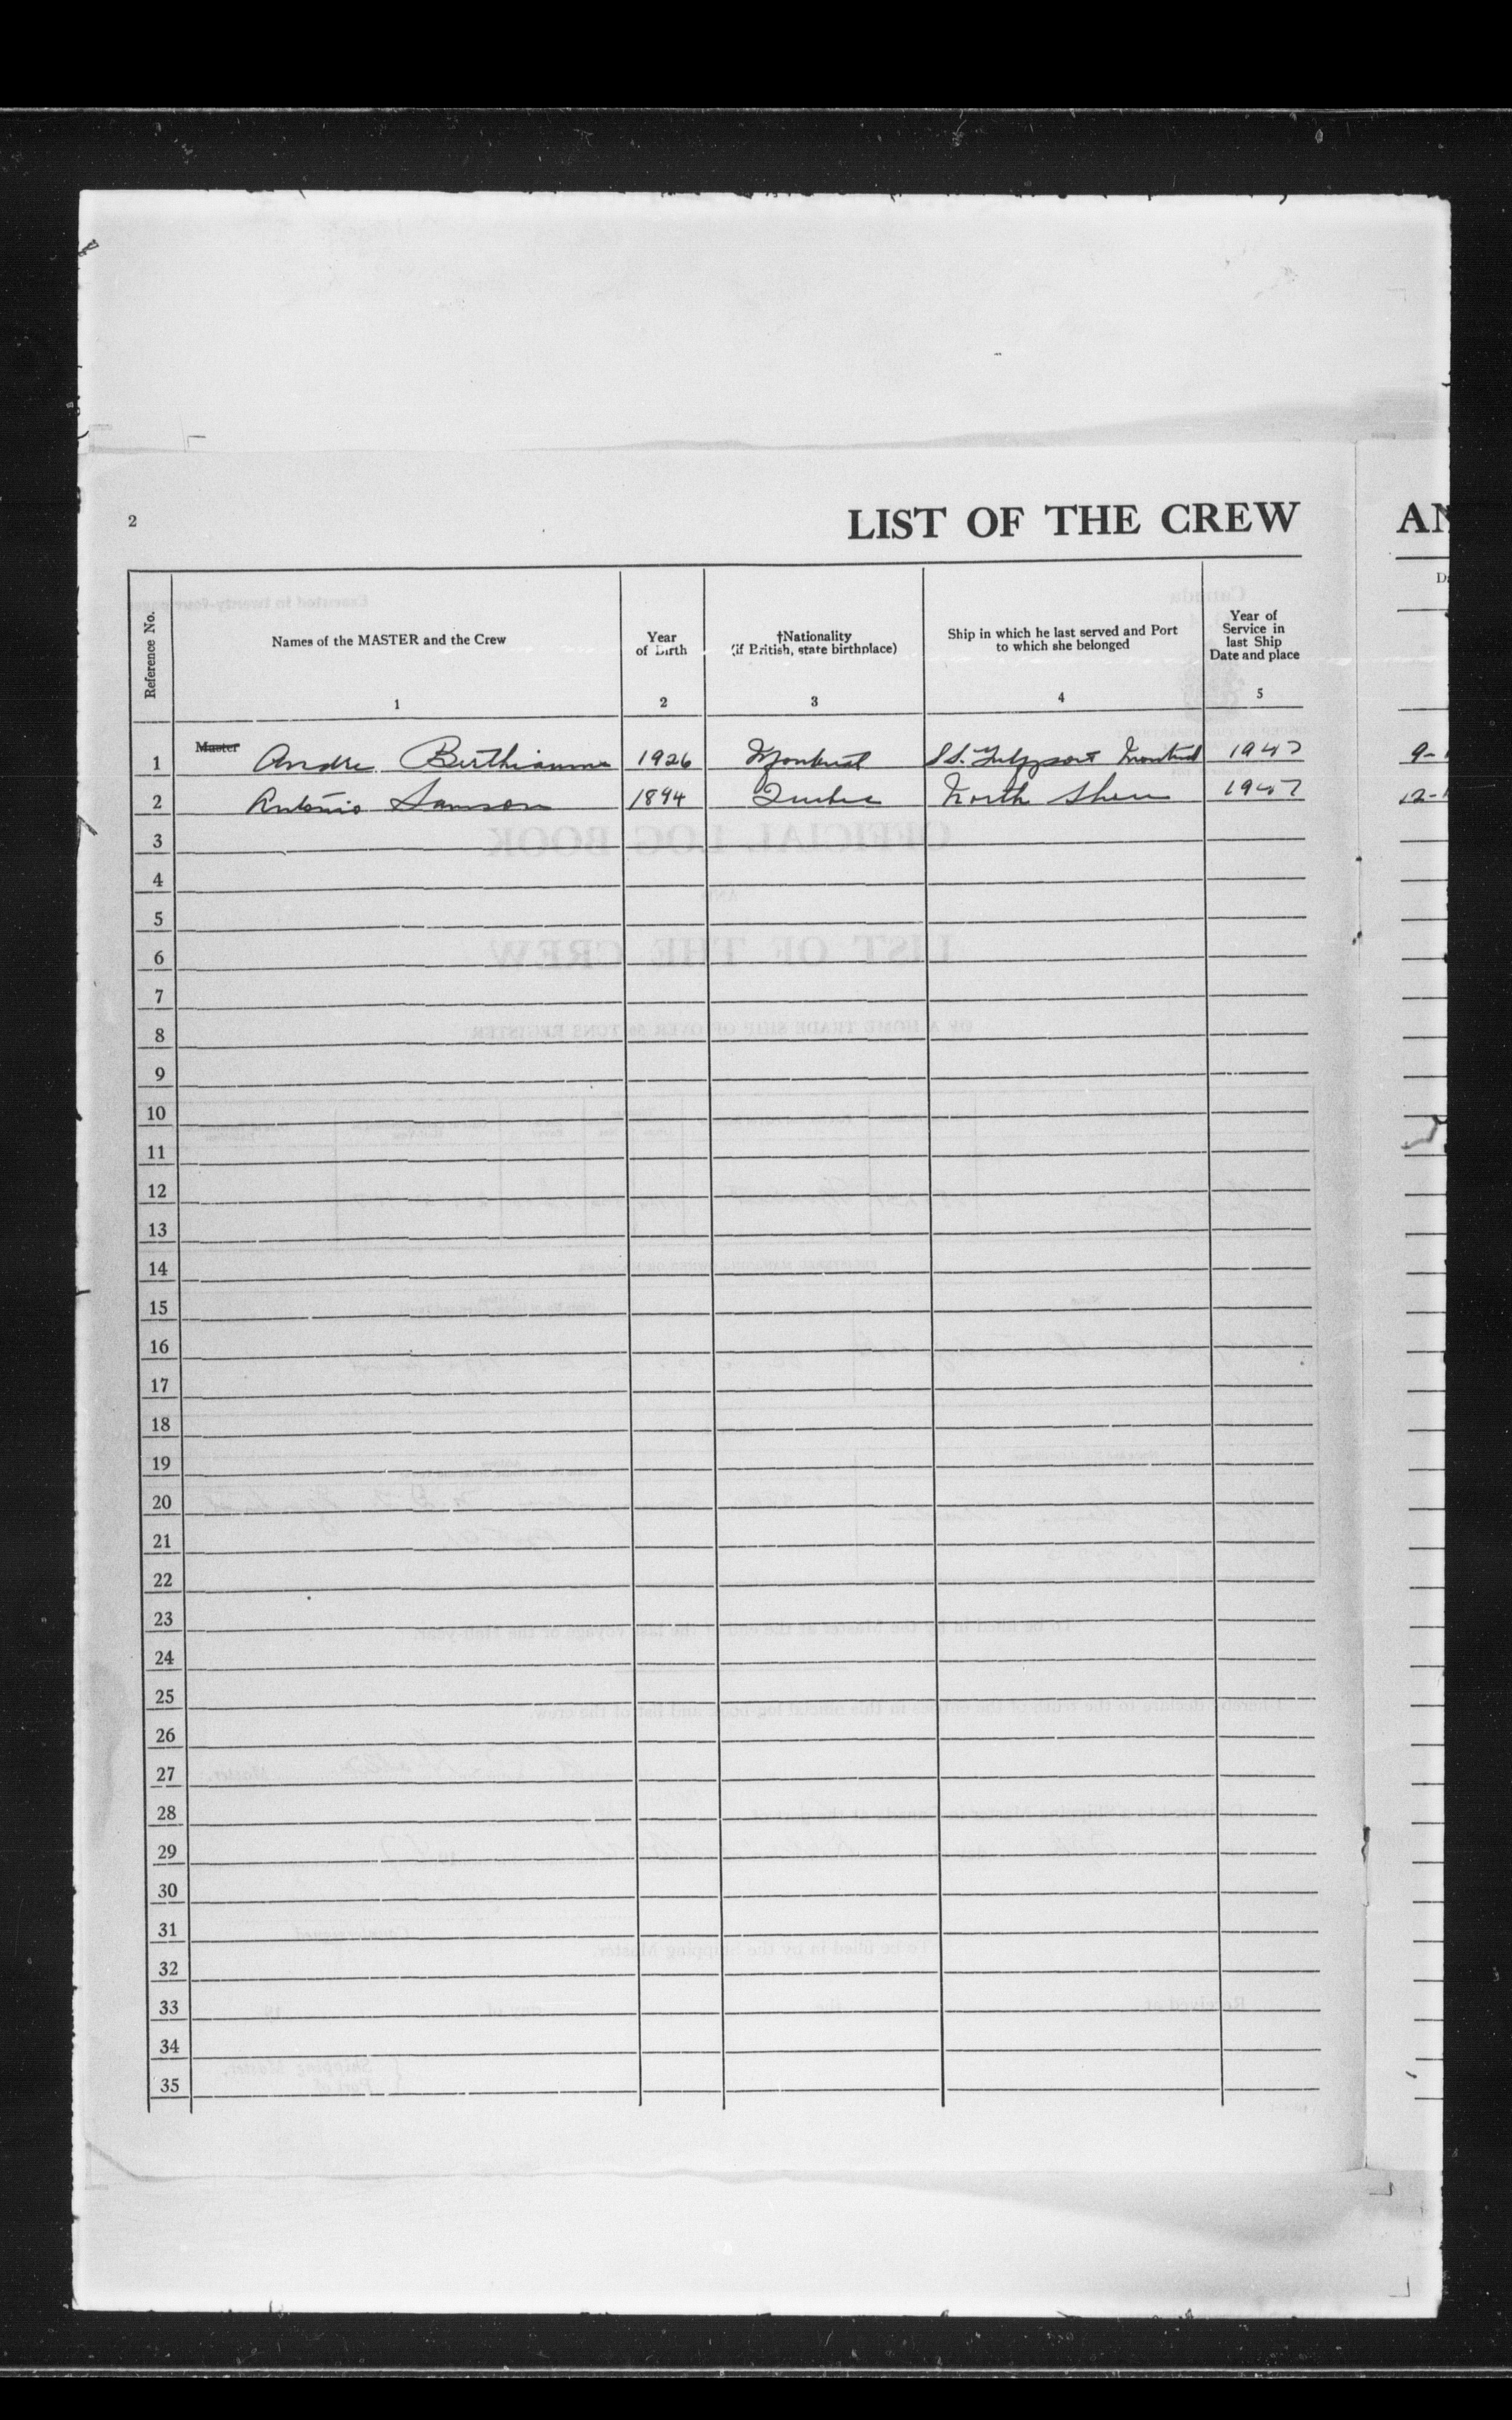 2
LIST OF THE CREW
AN
Reference No.
Names of the MASTER and the Crew
Year
of Birth
†Nationality
(if British, state birthplace)
Ship in which he last served and Port
to which she belonged
Year of
Service in
last Ship
Date and place
1
2
3
4
5
1 Master Andre Berthiaume 1926 Montreal Montreal 1947 9-
2 Antonio Samson 1894 Quebec North Shore 1947 12-
3
OFFICIAL LOG BOOK
4
AND
5
6
LIST OF THE CREW
7
8
OF A HOME TRADE SHIP OF OVER TONS REGISTER
9
10
11
12
13
14
15
16
17
18
19
20
21
22
23
24
25
26
27
28
29
30
31
32
33
34
35